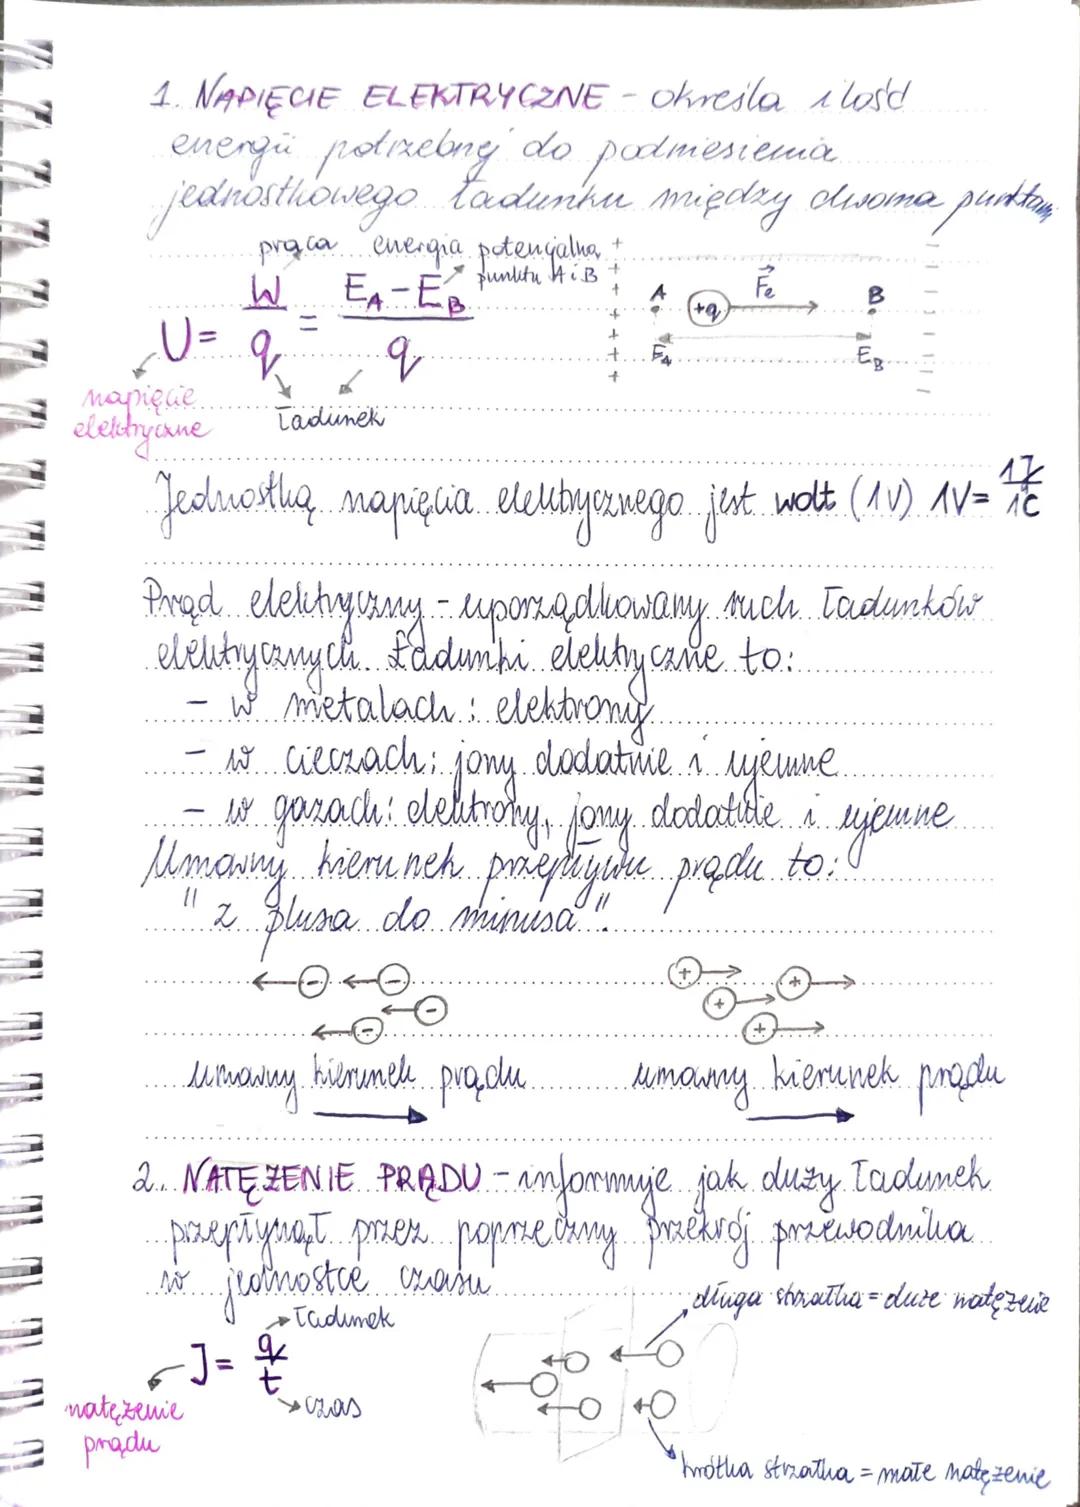 1. NAPIĘCIE ELEKTRYCZNE - określa ilość
energii potrzebnej do podniesienia
jednostkowego ładunku między dwoma punktami
praca energia potencjalna
punktu A i B
U = W/q = EA - EB/q
napięcie
elektryczne
ładunek
+ + + + + + + +
A +q Fe B
EA EB
Jednostką napięcia elektrycznego jest wolt (1V) 1V = 1J/1C
Prąd elektryczny - uporządkowany ruch ładunków
elektrycznych. Ładunki elektryczne to:
- w metalach: elektrony
- w cieczach: jony dodatnie i ujemne
- w gazach: elektrony, jony dodatnie i ujemne
Umowny kierunek przepływu prądu to:
"z plusa do minusa".
- - - -
+ + + +
umowny kierunek prądu
umowny kierunek prądu
2. NATĘŻENIE PRĄDU - informuje jak duży ładunek
przepłynął przez poprzeczny przekrój przewodnika
w jednostce czasu
długa strzałka = duże natężenie
ładunek
J = q/t
czas
natężenie
prądu
krótka strzałka = małe natężenie